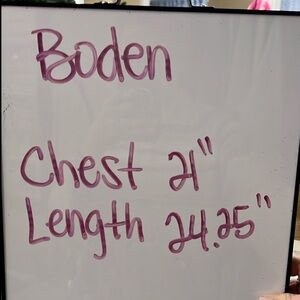 Boden
Chest 21"
Length 24.25"